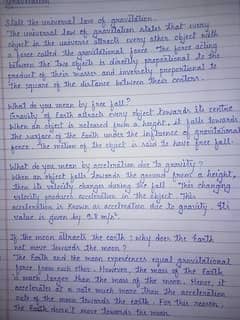 Gravitation
State the universal law of gravitation.
The universal law of gravitation states that every
object in the universe attracts every other object with
a force called the gravitational force. The force acting
between the two objects is directly proportional to the
product of their masses and inversely proportional to
the square of the distance between their centres.
What do you mean by free fall?
Gravity of Earth attracts every object towards its centre.
When an object is released from a height, it falls towards
the surface of the Earth under the influence of gravitational
force. The motion of the object is said to have free fall.
What do you mean by acceleration due to gravity?
When an object falls towards the ground from a height,
then its velocity changes during the fall. This changing
velocity produces acceleration in the object. This
acceleration is known as acceleration due to gravity. Its
value is given by 9.8 m/s².
If the moon attracts the earth, why does the Earth
not move towards the moon?
The Earth and the moon experiences equal gravitational
forces from each other. However, the mass of the Earth
is much larger than the mass of the moon. Hence, it
accelerates at a rate much lesser than the acceleration
rate of the moon towards the Earth. For this reason,
the Earth doesn't move towards the moon.